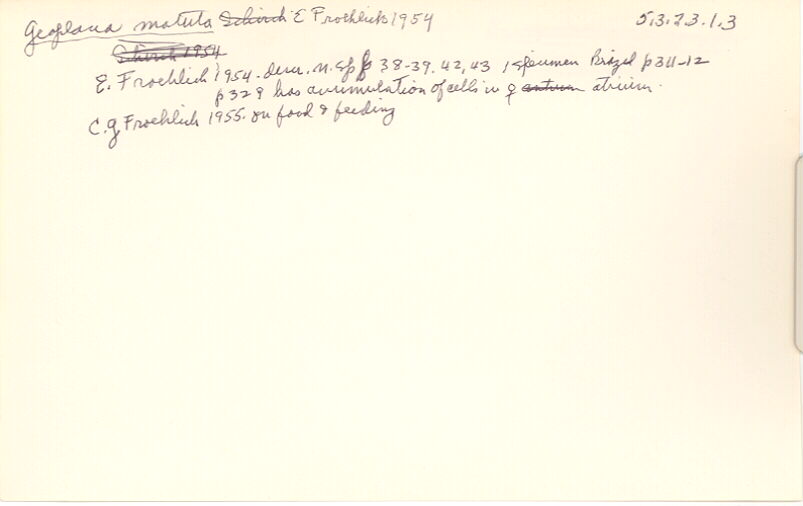 Geoplana matuta Schirch E Froehlich 1954 5.3.23.1.3
Schirch 1954
E. Froehlich 1954. descr. n. sp ff 38-39. 42, 43 1 specimen Brazil p311-12
p329 has accumulation of cells in ♀ antrum atrium.
C.G. Froehlich 1955. on food & feeding